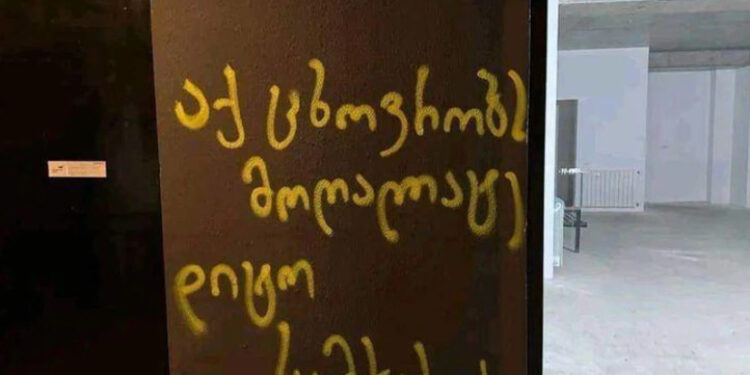 აქ ცხოვრობს
მოღალატე
დიტო